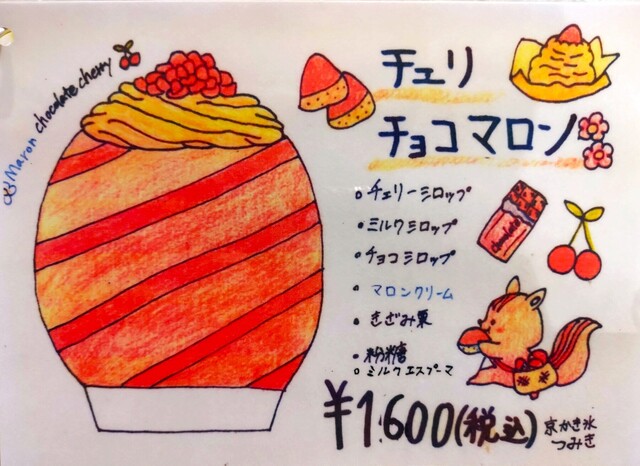 Maron chocolate cherry
チェリ
チョコマロン
チェリーシロップ
ミルクシロップ
チョコシロップ
マロンクリーム
きざみ栗
粉糖
ミルクエスプーマ
chocolate
¥1.600(税込)
京かき氷
つみき